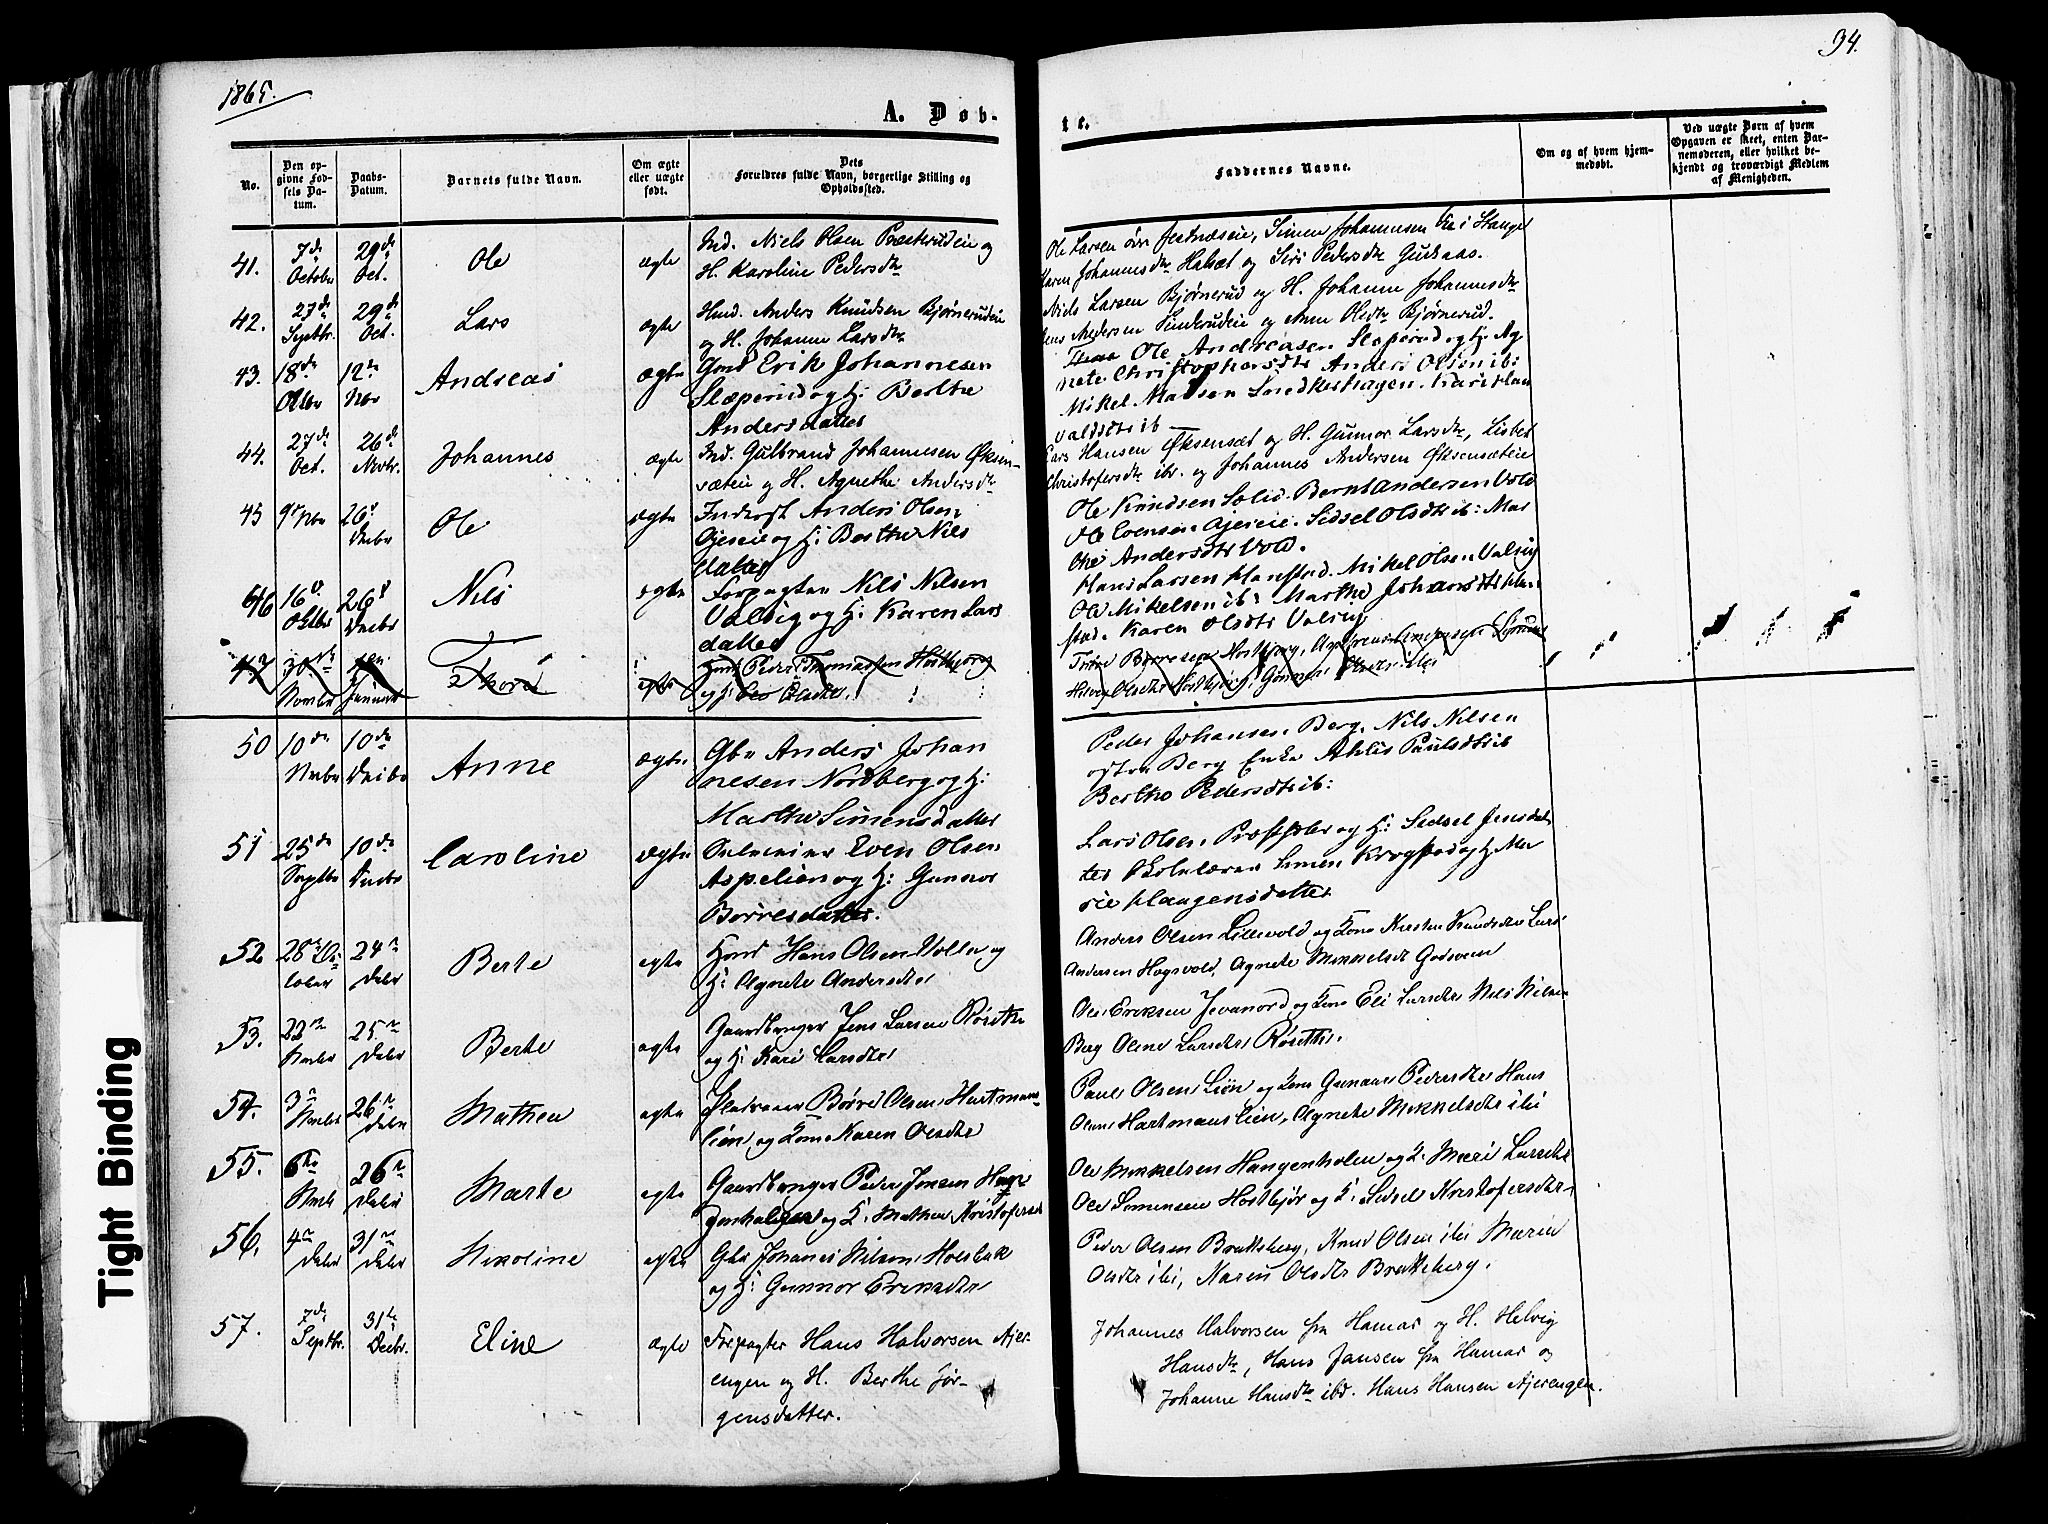 1865.
34.
A. Døb-
te.
No.
Den opgivne Fødsels Datum.
Daabs-Datum.
Barnets fulde Navn.
Om ægte eller uægte født.
Dets Forældres fulde Navn, borgerlige Stilling og Opholdssted.
Faddernes Navne.
Om og af hvem hjemmedøbt.
Ved uægte Børn af hvem Opgaven er skeet, enten Barnemoderen, eller hvilket bekjendt og troværdigt Medlem af Menigheden.
41. 7de October 29de Oct. Ole ægte Ind. Niels Olsen
H. Karoline Pedersdtr
Ole Larsen Simen Johannesen i Stange
Karen Johannesdtr og Siri Pedersdtr
42. 27de Septbr. 29de Oct. Lars ægte Hmd. Anders Knudsen Bjørnerudeie
og H. Johanne Larsdtr
Niels Larsen Bjørnerud og H. Johanne Johannesdtr
Andersen og Anne Olsdtr Bjørnerud.
43. 18de Oktbr 12te Nbr Andreas ægte Hmd Erik Johannesen
Slæperud og H: Berthe
Andersdatter
Ole Andreasen Slæperud og H: Ag-
nete Christophersdtr Anders Olsen ib:
Mikel Madsen Snedkerhagen. Kari Han
valdsdtr ib
44. 27de Oct. 26de Novbr. Johannes ægte Ind. Gulbrand Johannesen Øksen-
sæteie og H. Agnethe Andersdtr
Lars Hansen Øksensæt og H. Gunnor Larsdtr, Lisbet
Christofersdtr ibr. og Johannes Andersen Øksensæteie
45 9de Nbr 26d Decbr Ole ægte Inderst Anders Olsen
Ajeseie og H: Berthe Nils
datter
Ole Knudsen Bernt Andersen Vold
Ole Evensen Ajeseie. Sidsel Olsdtr ib: Mar
the Andersdtr Vold.
46 16d Oktbr 26d Decbr Nils ægte Forpagter Nils Nilsen
Valsig og H: Karen Lars
datter
Hans Larsen Hanstad. Mikel Olsen Valsig
Ole Mikelsen ib: Marthe Johansdtr Han-
stad. Karen Olsdtr Valsig
47 30te Novbr Januar Thore ægte Hmd Peder Thomassen Hostbjorg
og H:
Børresen Hostbjorg,
Olsdtr Hostbjorg, Gunnor
50 10de Nvbr 10de Decbr Anne ægte Gbr Anders Johan
nesen Nordberg og H:
Marthe Simensdatter
Peder Johansen Berg. Nils Nilsen
Berg Enke Paulsdtr ib
Berthe Pedersdtr ib:
51 25de Septbr 10de Decbr Caroline ægte Even Olsen
Aspelien og H: Gunnor
Børresdatter.
Lars Olsen. og H: Sidsel Jensdat
ter Skolelærer Simen Krogstad og H. Ma
rie Haugensdatter
52 28de October 24de Debr Berte egte Hmd Hans Olsen Volla og
H: Agnete Andersdtr
Anders Olsen Lillevold og Kone Kirsten Knudsdtr Lars
Andersen Hogsvold, Agnete Mikkelsdt Godsveen
53. 22de Novbr 25de Debr Berte egte Gaardbruger Jens Larsen Røseth
og H: Kari Larsdtr
Ole Eriksen Jevanord og Kone Eli Larsdtr Nils Nilsen
Berg Oline Larsdtr Røseth.
54. 3de Novbr 26de Debr Mathea egte Pladsmand Børre Olsen Hartmans-
lien og Kone Karen Olsdtr
Paul Olsen Lien og Kone Gunnor Pedersdtr Hans
Olsen Hartmanslien, Agnete Mikkelsdtr ibi
55. 6te Novbr 26de Debr Marte egte Gaardbruger Peder Jensen Haug
enholen og K. Mathea Kristofersd
Ole Mikkelsen Haugenholen og K. Mari Larsdtr
Ole Simensen Hostbjør og K. Sidsel Kristofersdtr
56. 4de Debr 31te Debr Nikoline egte Gbr Johanes Nilsen Holsbak
og H: Gunnor Eriksdtr
Peder Olsen Brattsberg, Knud Olsen ibi Marie
Olsdtr ibi, Karen Olsdtr Bratsberg.
57. 7de Septbr. 31te Decbr. Eline ægte Forpagter Hans Halvorsen Ajer-
engen og H. Berthe Jør-
gensdatter.
Johannes Halvorsen fra Hamar og H. Helvig
Hansdtr, Hans Jansen fra Hamar og
Johanne Hansdtr ibd. Hans Hansen Ajerengen.
Tight Binding